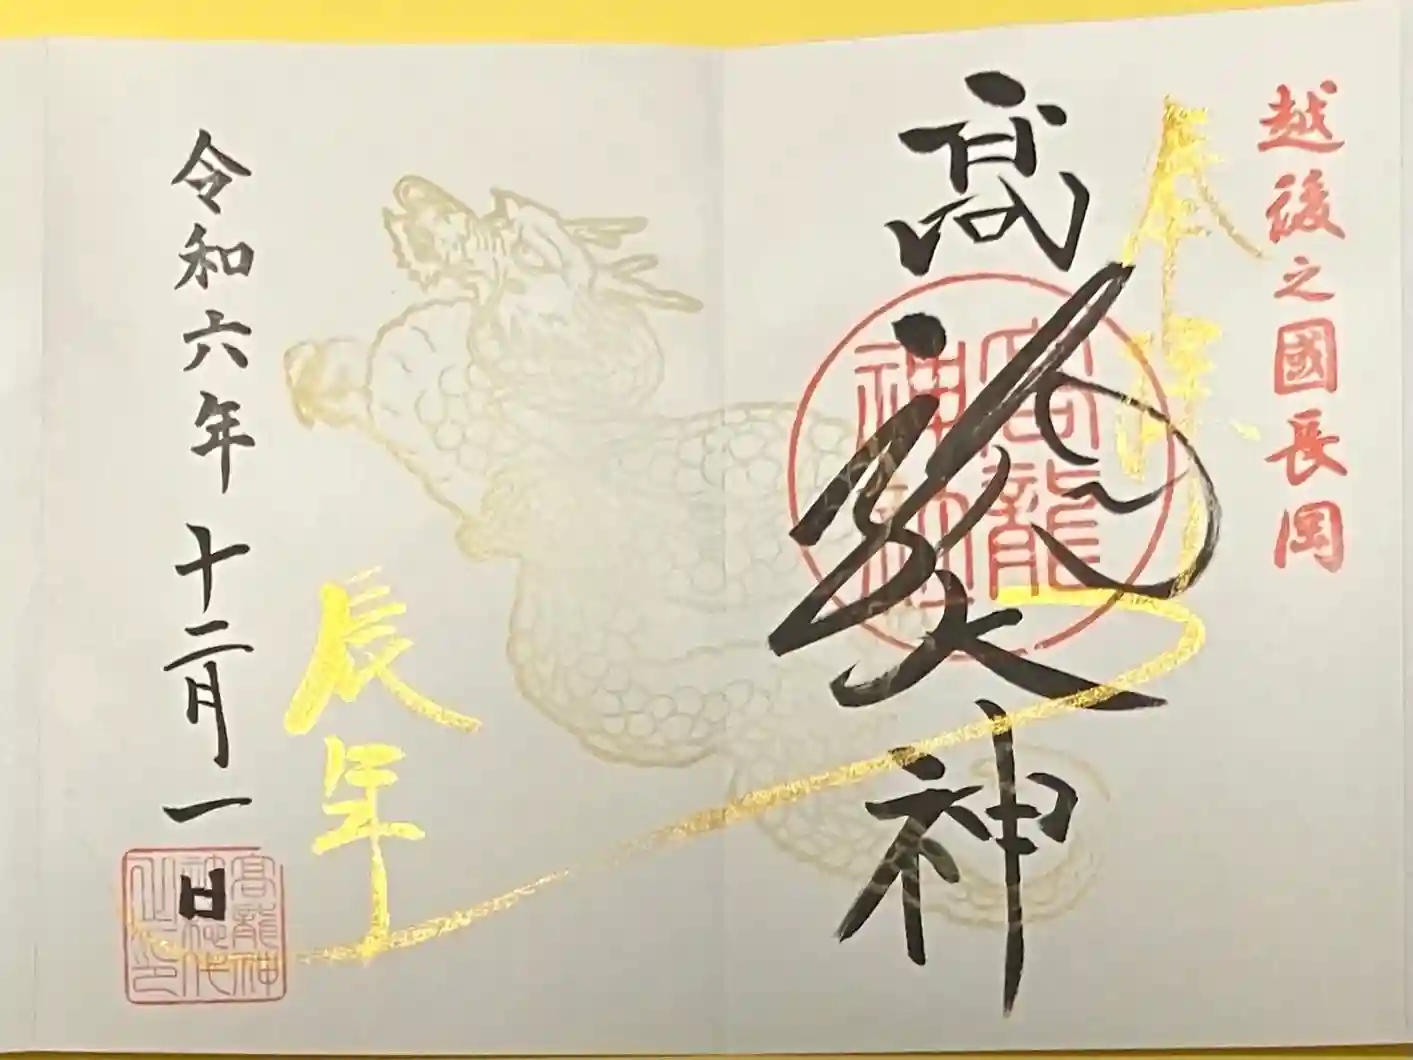 越後之國長岡
奉拝
髙龍神
高龍神社
辰年
令和六年十二月一日